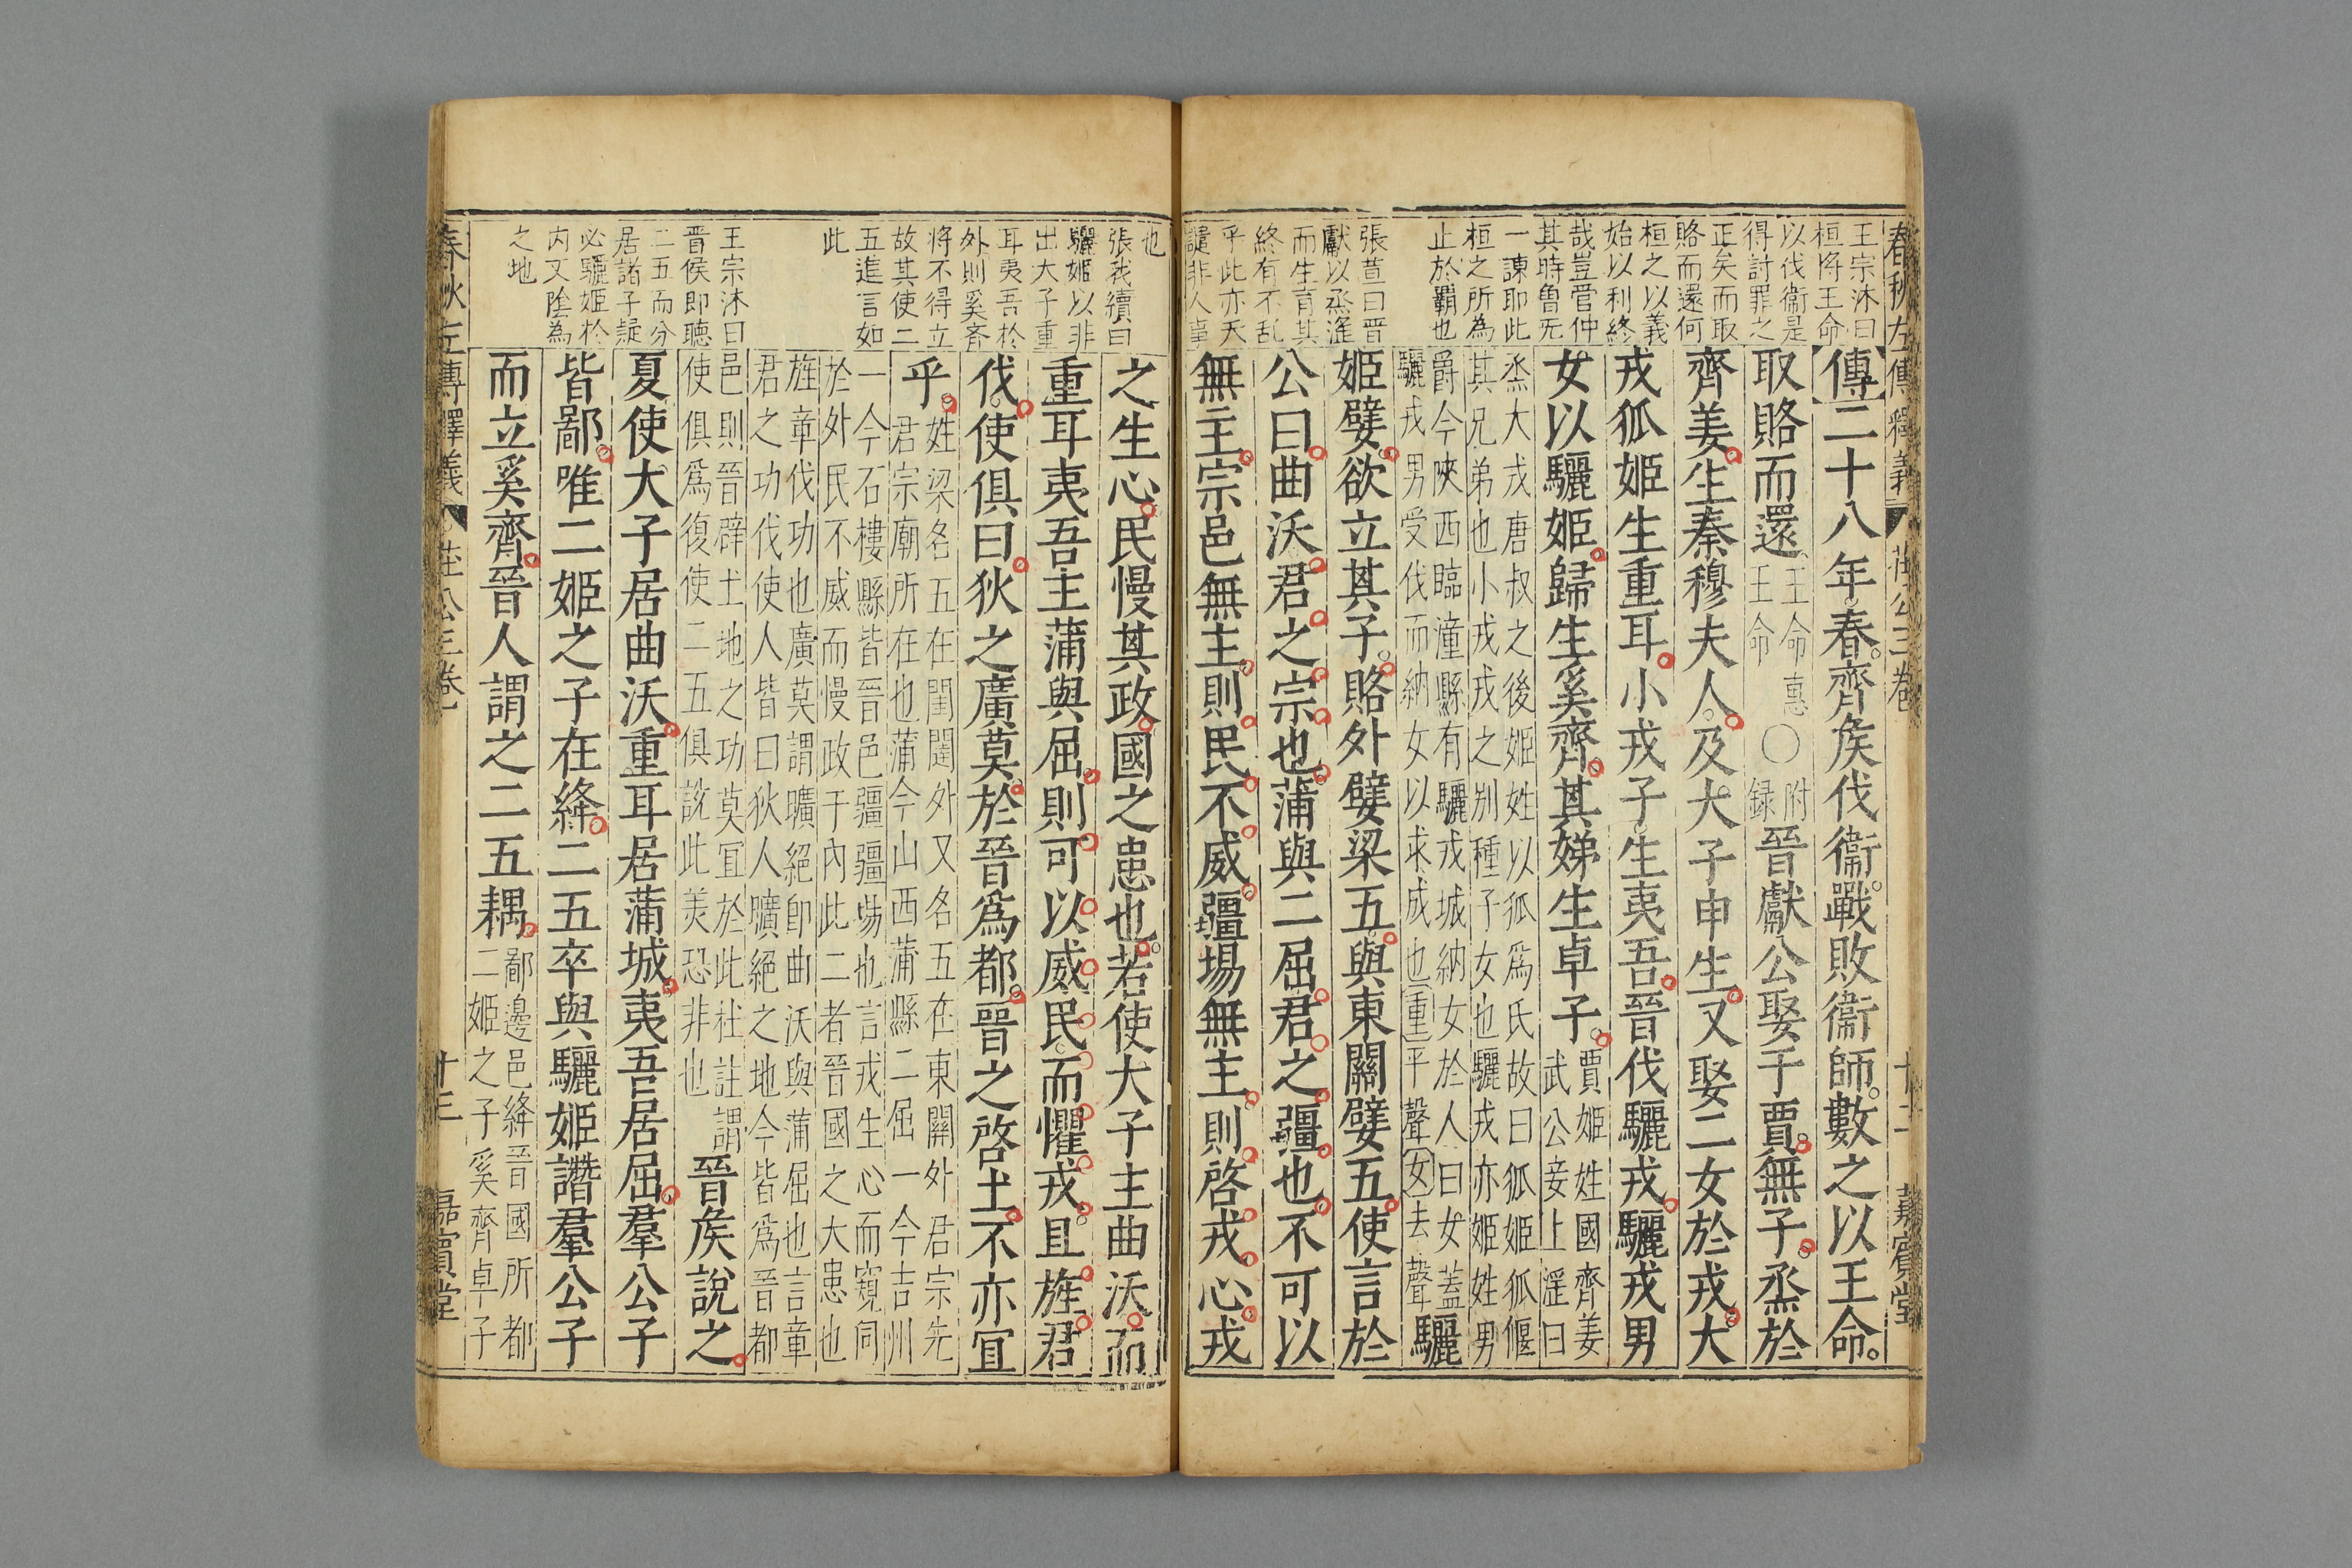 春秋左傳釋義
莊公三卷
十二
嘉賓堂
王宗沐曰
桓将王命
以伐衞是
得討罪之
正矣而取
賂而還何
桓之以義
始以利終
哉豈管仲
其時魯无
一諫耶此
桓之所為
止於霸也
張萱曰晋
獻以烝滛
而生育其
終有不乱
乎此亦天
譴非人事
傳二十八年春齊矦伐衞戰敗衞師數之以王命
取賂而還
王命惠
王命
〇
附
録
晉獻公娶于賈無子烝於
齊姜生秦穆夫人及大子申生又娶二女於戎大
戎狐姬生重耳小戎子生夷吾晉伐驪戎驪戎男
女以驪姬歸生奚齊其娣生卓子
賈姬姓國齊姜
武公妾上滛曰
烝大戎唐叔之後姬姓以狐爲氏故曰狐姬狐偃
其兄弟也小戎戎之别種子女也驪戎亦姬姓男
爵今陜西臨潼縣有驪戎城納女於人曰女蓋
驪戎男受伐而納女以求成也重平聲女去聲
驪
姬嬖欲立其子賂外嬖梁五與東關嬖五使言於
公曰曲沃君之宗也蒲與二屈君之疆也不可以
無主宗邑無主則民不威疆場無主則啓戎心戎
也
張我續曰
驪姬以非
出大子重
耳夷吾於
外則奚齊
将不得立
故其使二
五進言如
此
王宗沐曰
晋侯即聴
二五而分
居諸子疑
必驪姬於
内又陰為
之地
之生心民慢其政國之患也若使大子主曲沃而
重耳夷吾主蒲與屈則可以威民而懼戎且旌君
伐使俱曰狄之廣莫於晉爲都晉之啓土不亦冝
乎
姓梁名五在閨闥外又名五在東關外君宗先
君宗廟所在也蒲今山西蒲縣二屈一今吉州
一今石樓縣皆晋邑疆疆埸也言戎生心而窺伺
於外民不威而慢政于内此二者晉國之大患也
旌章伐功也廣莫謂曠絕即曲沃與蒲屈也言章
君之功伐使人皆曰狄人曠絕之地今皆爲晉都
邑則晋辟土地之功莫冝於此杜註謂
使俱爲復使二五俱說此美恐非也
晉矦說之
夏使大子居曲沃重耳居蒲城夷吾居屈羣公子
皆鄙唯二姬之子在絳二五卒與驪姬譖羣公子
而立奚齊晉人謂之二五耦
鄙邊邑絳晉國所都
二姬之子奚齊卓子
春秋左傳釋義
莊公三卷
十三
嘉賓堂